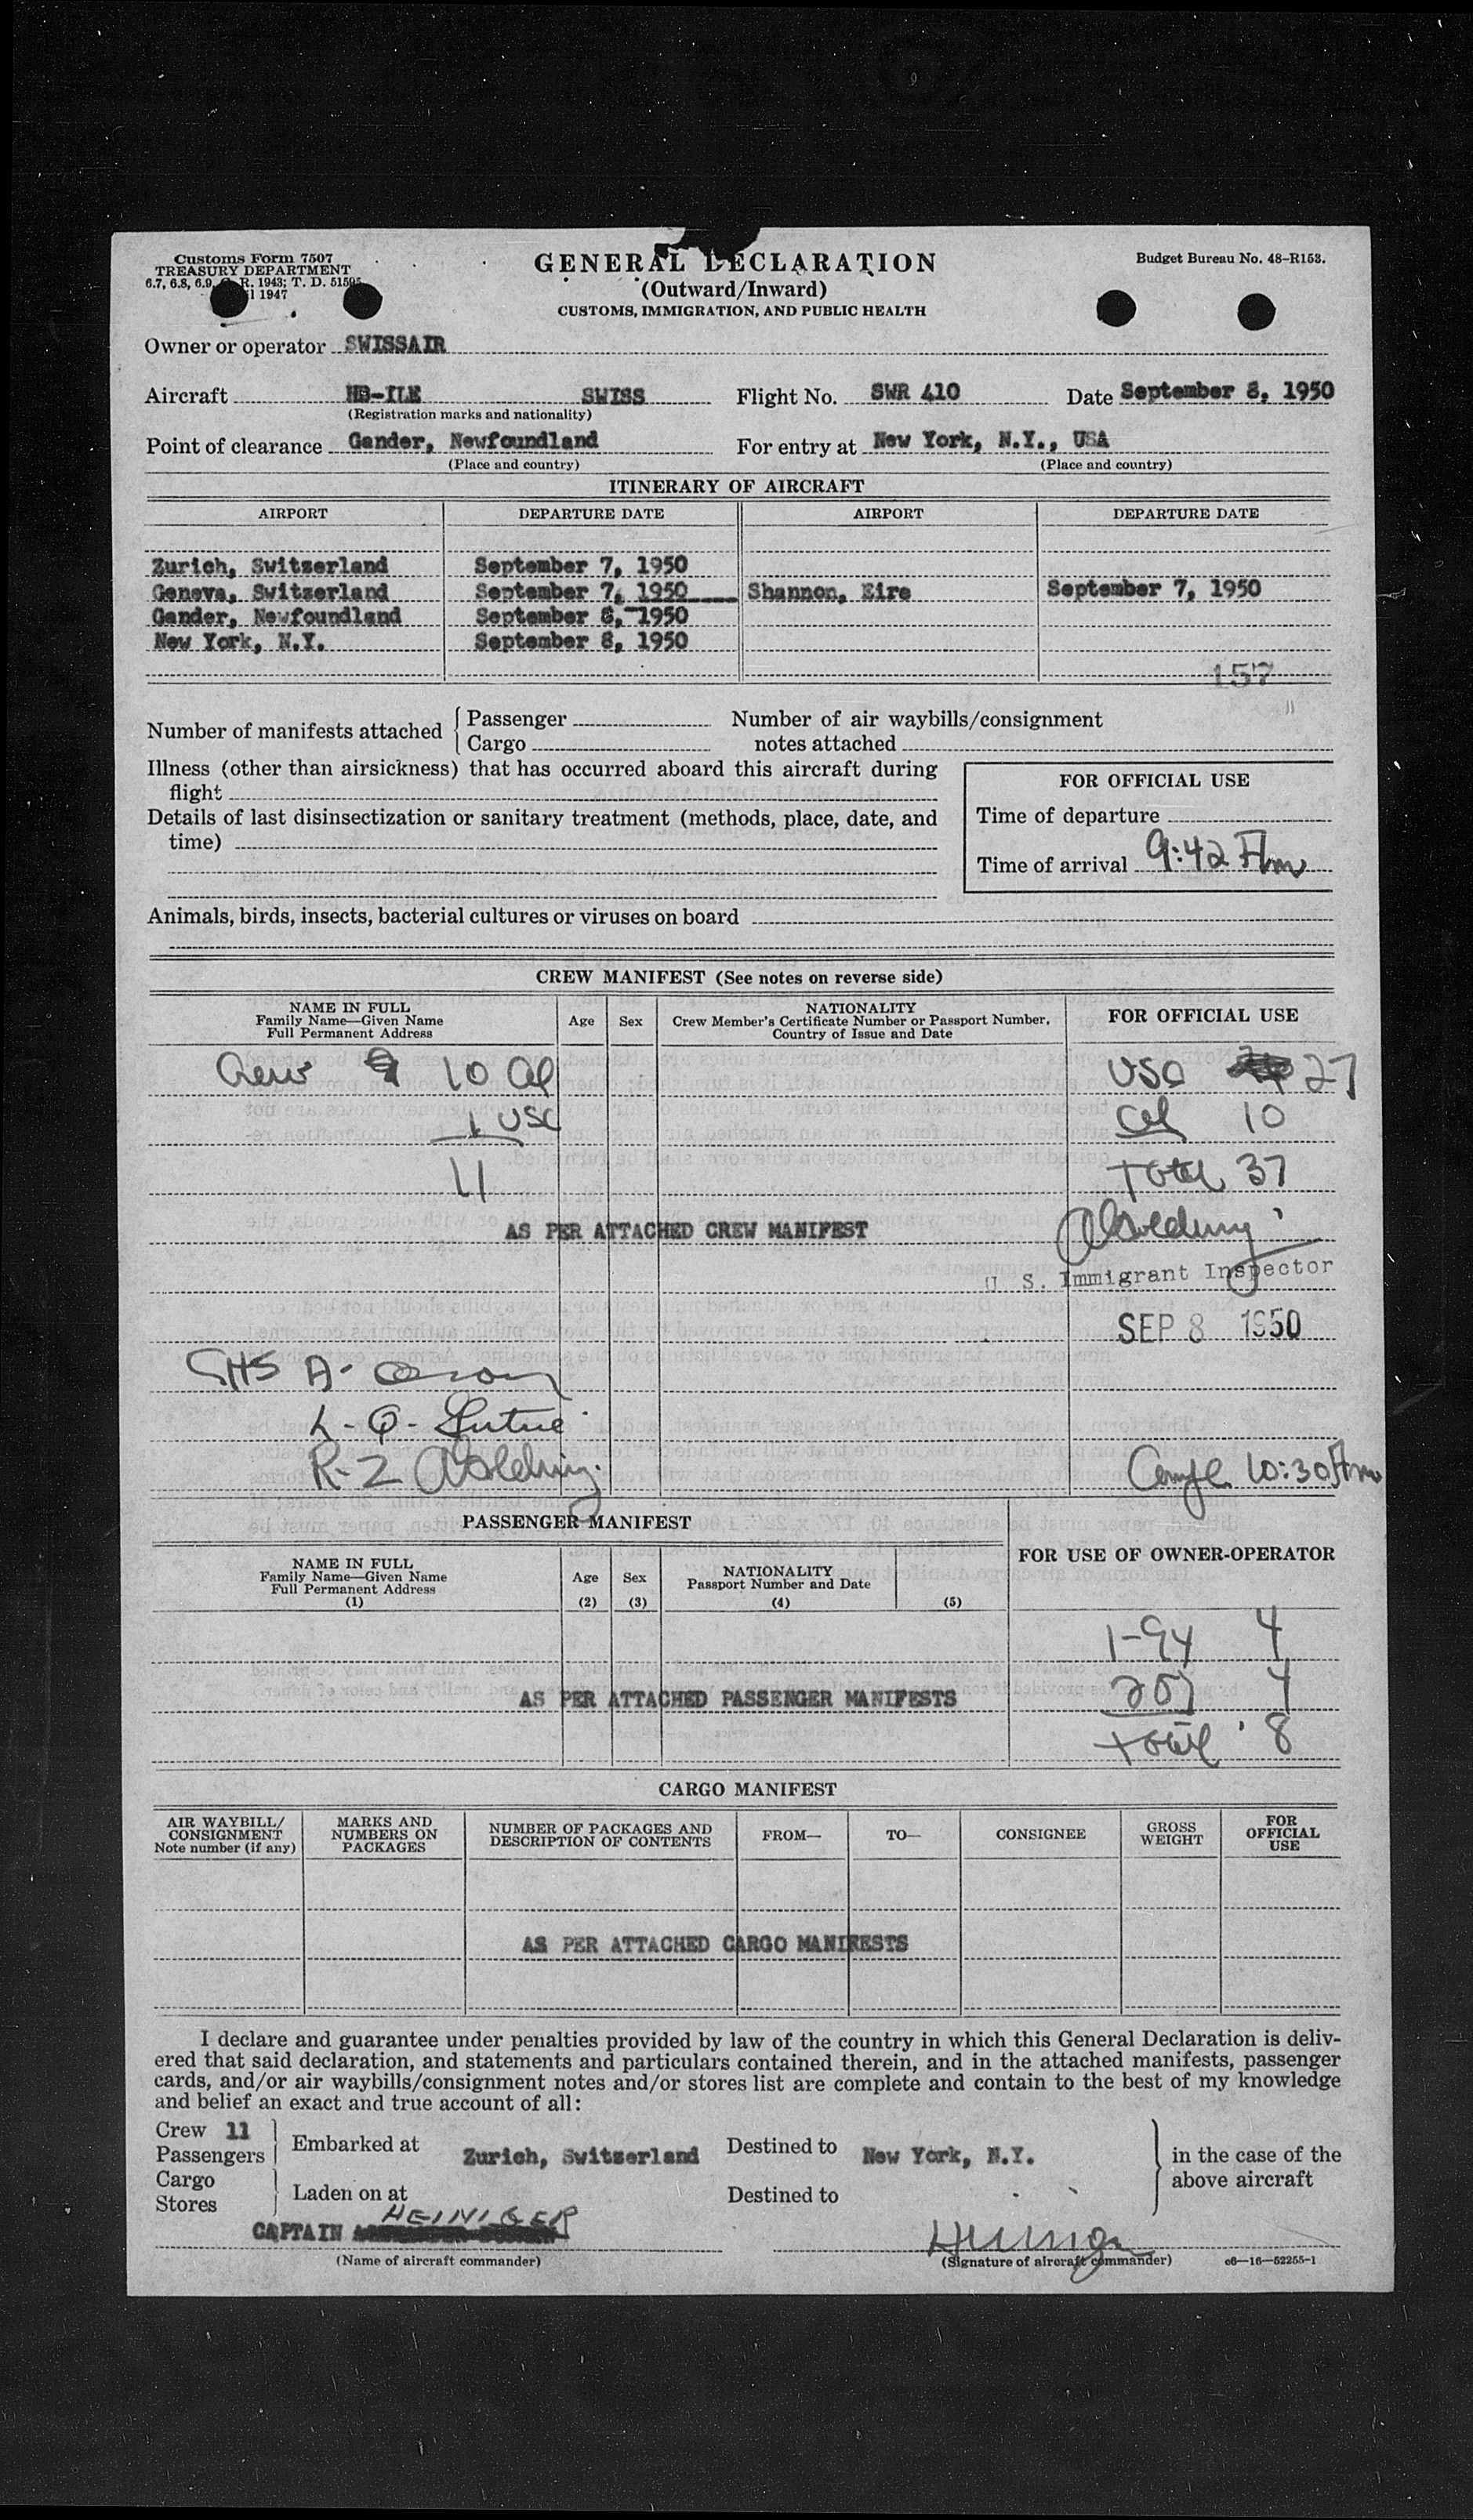 Customs Form 7507
TREASURY DEPARTMENT
6.7, 6.8, 6.9, R. 1943; T. D. 51505
1947
GENERAL DECLARATION
(Outward/Inward)
CUSTOMS, IMMIGRATION, AND PUBLIC HEALTH
Budget Bureau No. 48-R153.
Owner or operator SWISSAIR
Aircraft HB-ILE SWISS Flight No. SWR 410 Date September 8, 1950
(Registration marks and nationality)
Point of clearance Gander, Newfoundland For entry at New York, N.Y., USA
(Place and country) (Place and country)
ITINERARY OF AIRCRAFT
AIRPORT DEPARTURE DATE AIRPORT DEPARTURE DATE
Zurich, Switzerland September 7, 1950
Geneva, Switzerland September 7, 1950 Shannon, Eire September 7, 1950
Gander, Newfoundland September 8, 1950
New York, N.Y. September 8, 1950
157
Number of manifests attached { Passenger Number of air waybills/consignment
Cargo notes attached
Illness (other than airsickness) that has occurred aboard this aircraft during
flight
Details of last disinsectization or sanitary treatment (methods, place, date, and
time)
FOR OFFICIAL USE
Time of departure
Time of arrival 9:42 Am
Animals, birds, insects, bacterial cultures or viruses on board
CREW MANIFEST (See notes on reverse side)
NAME IN FULL
Family Name—Given Name
Full Permanent Address
Age Sex
NATIONALITY
Crew Member's Certificate Number or Passport Number,
Country of Issue and Date
FOR OFFICIAL USE
Crew 10 al USC 27
1 USC al 10
11 Total 37
AS PER ATTACHED CREW MANIFEST
U. S. Immigrant Inspector
SEP 8 1950
R-Z
10:30 Am
PASSENGER MANIFEST
FOR USE OF OWNER-OPERATOR
NAME IN FULL
Family Name—Given Name
Full Permanent Address
(1)
Age
(2)
Sex
(3)
NATIONALITY
Passport Number and Date
(4) (5)
1-94 4
257 4
AS PER ATTACHED PASSENGER MANIFESTS
total 8
CARGO MANIFEST
AIR WAYBILL/
CONSIGNMENT
Note number (if any)
MARKS AND
NUMBERS ON
PACKAGES
NUMBER OF PACKAGES AND
DESCRIPTION OF CONTENTS
FROM—
TO—
CONSIGNEE
GROSS
WEIGHT
FOR
OFFICIAL
USE
AS PER ATTACHED CARGO MANIFESTS
I declare and guarantee under penalties provided by law of the country in which this General Declaration is deliv-
ered that said declaration, and statements and particulars contained therein, and in the attached manifests, passenger
cards, and/or air waybills/consignment notes and/or stores list are complete and contain to the best of my knowledge
and belief an exact and true account of all:
Crew 11
Passengers
Embarked at Zurich, Switzerland Destined to New York, N.Y.
in the case of the
above aircraft
Cargo
Stores
Laden on at Destined to
HEINIGER
CAPTAIN
(Name of aircraft commander) (Signature of aircraft commander) c6—16—52255-1